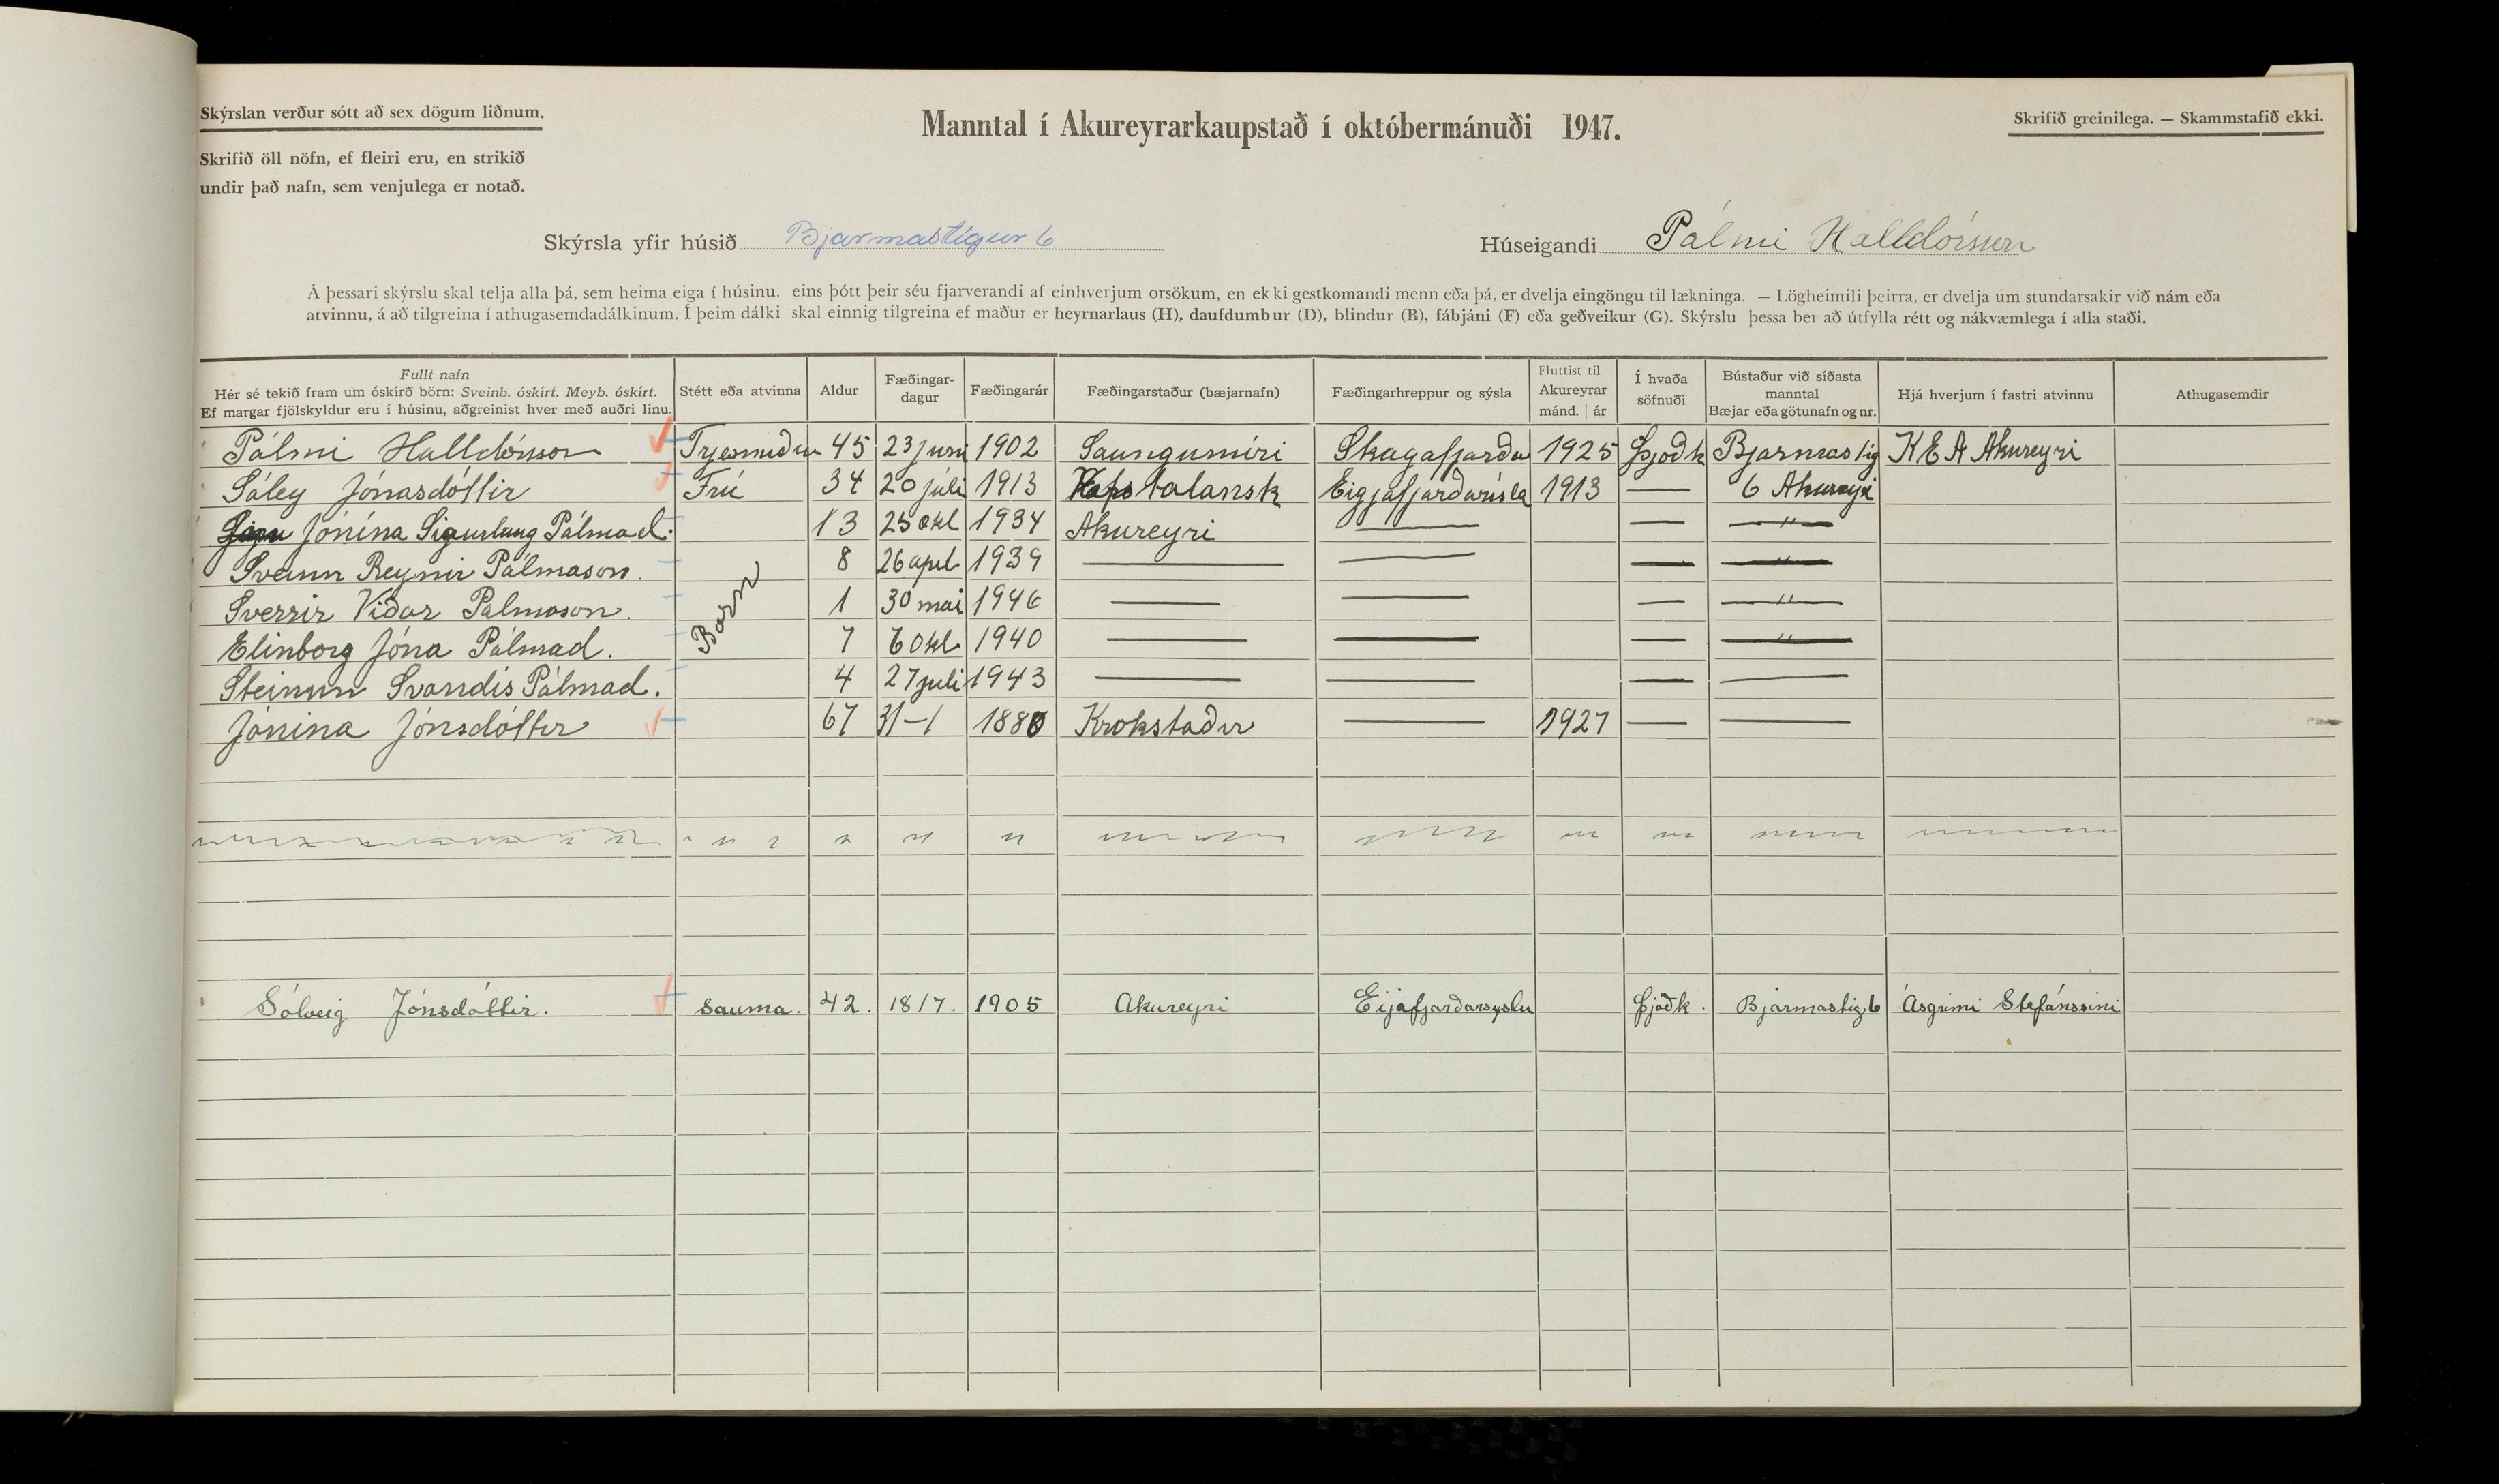 Skýrslan verður sótt að sex dögum liðnum.
Manntal í Akureyrarkaupstað í októbermánuði 1947.
Skrifið greinilega. — Skammstafið ekki.
Skrifið öll nöfn, ef fleiri eru, en strikið
undir það nafn, sem venjulega er notað.
Skýrsla yfir húsið Bjarmastígur 6
Húseigandi Pálmi Halldórsson
Á þessari skýrslu skal telja alla þá, sem heima eiga í húsinu, eins þótt þeir séu fjarverandi af einhverjum orsökum, en ekki gestkomandi menn eða þá, er dvelja eingöngu til lækninga. — Lögheimili þeirra, er dvelja um stundarsakir við nám eða
atvinnu, á að tilgreina í athugasemdadálkinum. Í þeim dálki skal einnig tilgreina ef maður er heyrnarlaus (H), daufdumbur (D), blindur (B), fábjáni (F) eða geðveikur (G). Skýrslu þessa ber að útfylla rétt og nákvæmlega í alla staði.
Fullt nafn
Hér sé tekið fram um óskírð börn: Sveinb. óskírt. Meyb. óskírt.
Ef margar fjölskyldur eru í húsinu, aðgreinist hver með auðri línu.
Stétt eða atvinna
Aldur
Fæðingar-
dagur
Fæðingarár
Fæðingarstaður (bæjarnafn)
Fæðingarhreppur og sýsla
Fluttist til
Akureyrar
mánd. | ár
Í hvaða
söfnuði
Bústaður við síðasta
manntal
Bæjar eða götunafn og nr.
Hjá hverjum í fastri atvinnu
Athugasemdir
Pálmi Halldórsson Trjesmiður 45 23 juni 1902 Saungumíri Skagafjarðu 1925 Þjoðk Bjarmastig K E A Akureyri
Sóley Jónasdóttir Frú 34 20 júli 1913 1913 — 6 Akureyri
Jónína Sigurlaug Pálmad. 13 25 okt 1934 Akureyri — — — " —
Sveinn Reynir Pálmason. 8 26 apel 1939 — — — — " —
Sverrir Viðar Pálmason. 1 30 mai 1946 — — — — " —
Börn
Elinborg Jóna Pálmad. 7 6 okt 1940 — — — — " —
Steinunn Svandís Pálmad. 4 27 juli 1943 — — — —
Jónína Jónsdóttir 67 31-1 1880 Krokstaðir — 1927 — —
Sólveig Jónsdóttir. sauma. 42. 18/7. 1905 Akureyri Eijafjarðarsyslu Þjóðk. Bjarmastig 6 Ásgrimi Stefánssini